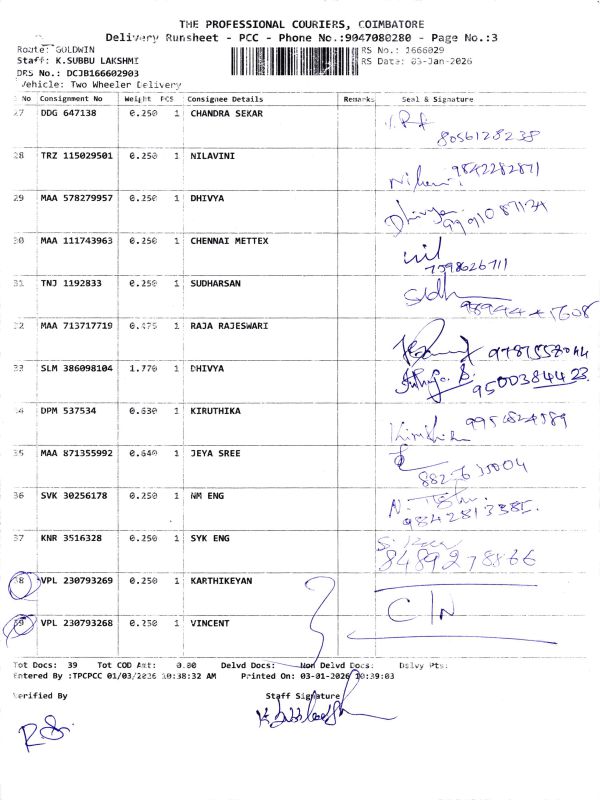 THE PROFESSIONAL COURIERS, COIMBATORE
Delivery Runsheet - PCC - Phone No.:9047080280 - Page No.:3
Route: GOLDWIN RS No.: J666029
Staff: K.SUBBU LAKSHMI RS Date: 03-Jan-2026
DRS No.: DCJB166602903
Vehicle: Two Wheeler Delivery
No Consignment No Weight PCS Consignee Details Remarks Seal & Signature
27 DDG 647138 0.250 1 CHANDRA SEKAR
8056128238
28 TRZ 115029501 0.250 1 NILAVINI 9842282871
29 MAA 578279957 0.250 1 DHIVYA Dhivya
30 MAA 111743963 0.250 1 CHENNAI METTEX
7398626711
31 TNJ 1192833 0.250 1 SUDHARSAN Sudh
32 MAA 713717719 0.475 1 RAJA RAJESWARI
33 SLM 386098104 1.770 1 DHIVYA
9500384423
34 DPM 537534 0.630 1 KIRUTHIKA
35 MAA 871355992 0.640 1 JEYA SREE
36 SVK 30256178 0.250 1 NM ENG
37 KNR 3516328 0.250 1 SYK ENG
38 VPL 230793269 0.250 1 KARTHIKEYAN
C/N
39 VPL 230793268 0.250 1 VINCENT
Tot Docs: 39 Tot COD Amt: 0.00 Delvd Docs: Non Delvd Docs: Dslvy Pts:
Entered By :TPCPCC 01/03/2026 10:38:32 AM Printed On: 03-01-2026 10:39:03
Verified By Staff Signature